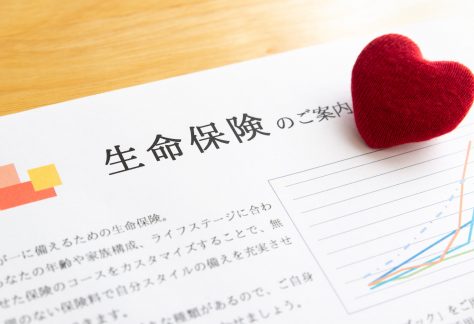 生命保険のご案内
が一に備えるための生命保険。
なたの年齢や家族構成、ライフステージに合わ
せた保険のコースをカスタマイズすることで、無
のない保険料で自分スタイルの備えを充実させ
きます。
な種類があるので、ご自身
せましょう。
ック」をご